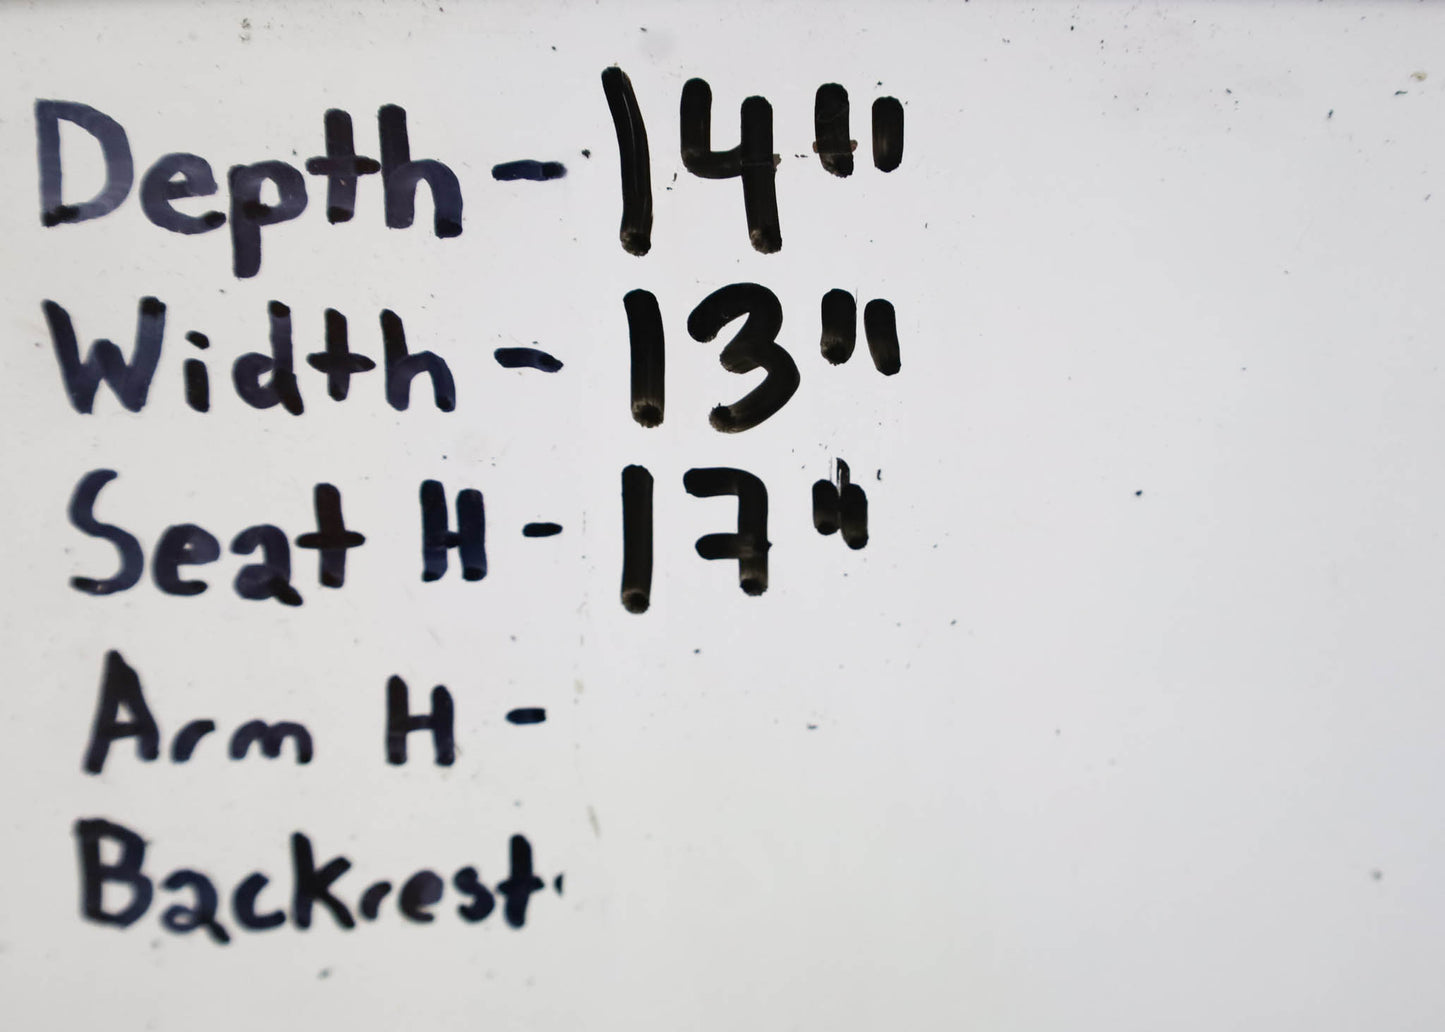 Depth - 14"
Width - 13"
Seat H - 17"
Arm H -
Backrest-